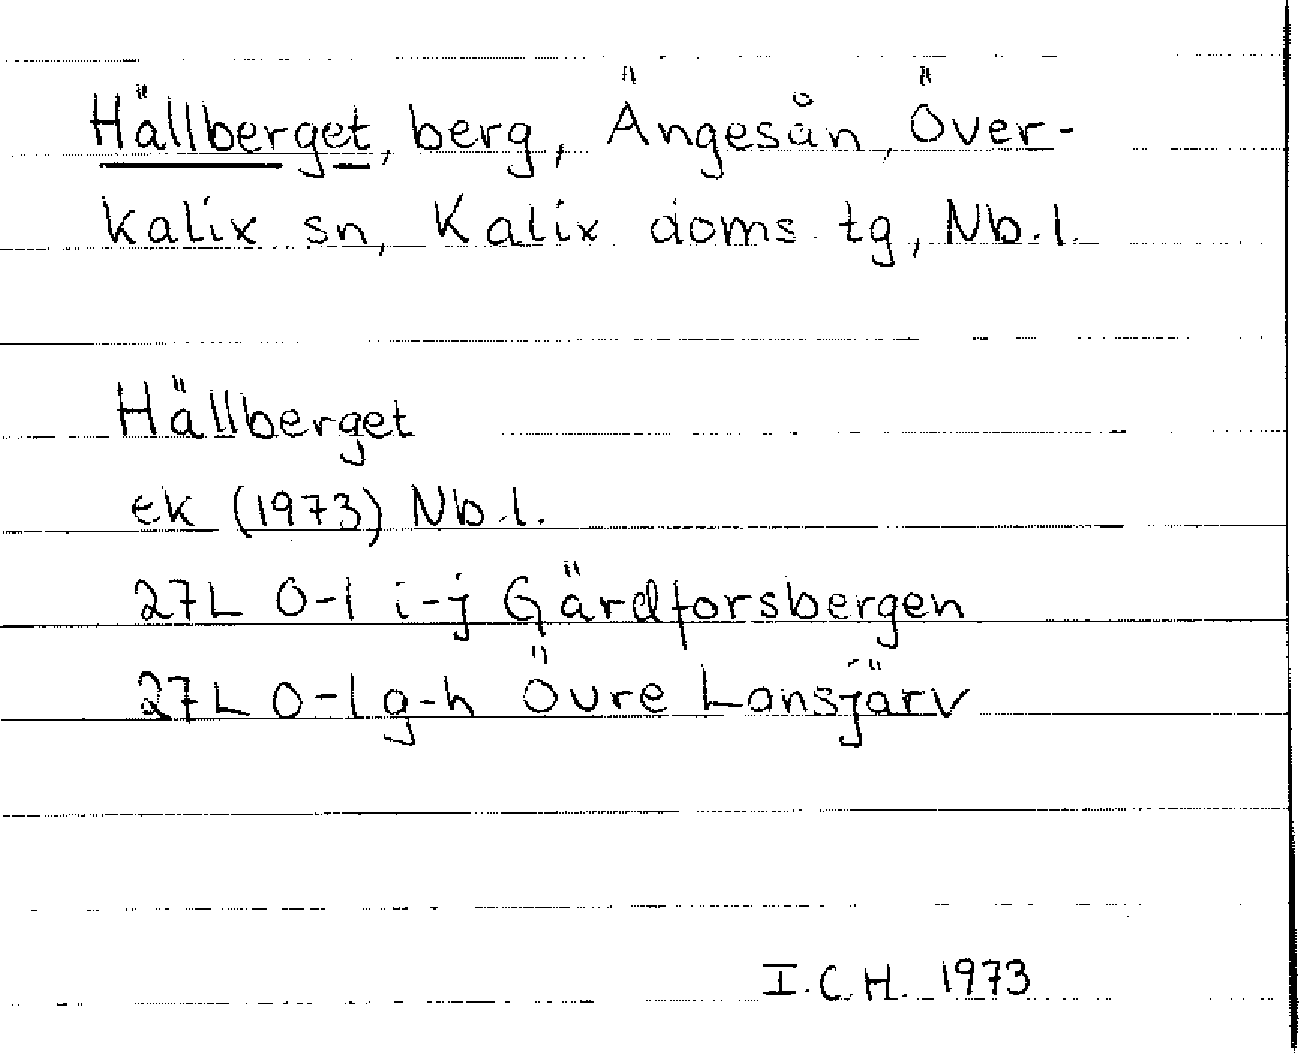 Hällberget, berg, Ängesån, Över-
kalix sn, Kalix doms. tg, Nb.l.
Hällberget
ek (1973) Nb.l.
27L 0-1 i-j Gärdforsbergen
27L 0-1 g-h Övre Lansjärv
I.C.H. 1973